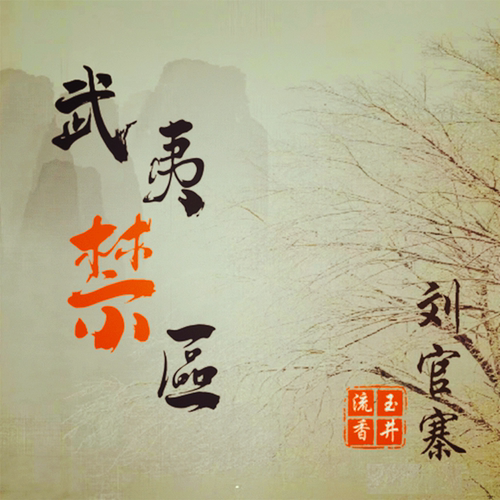 武夷禁區
刘官寨
玉井
流香